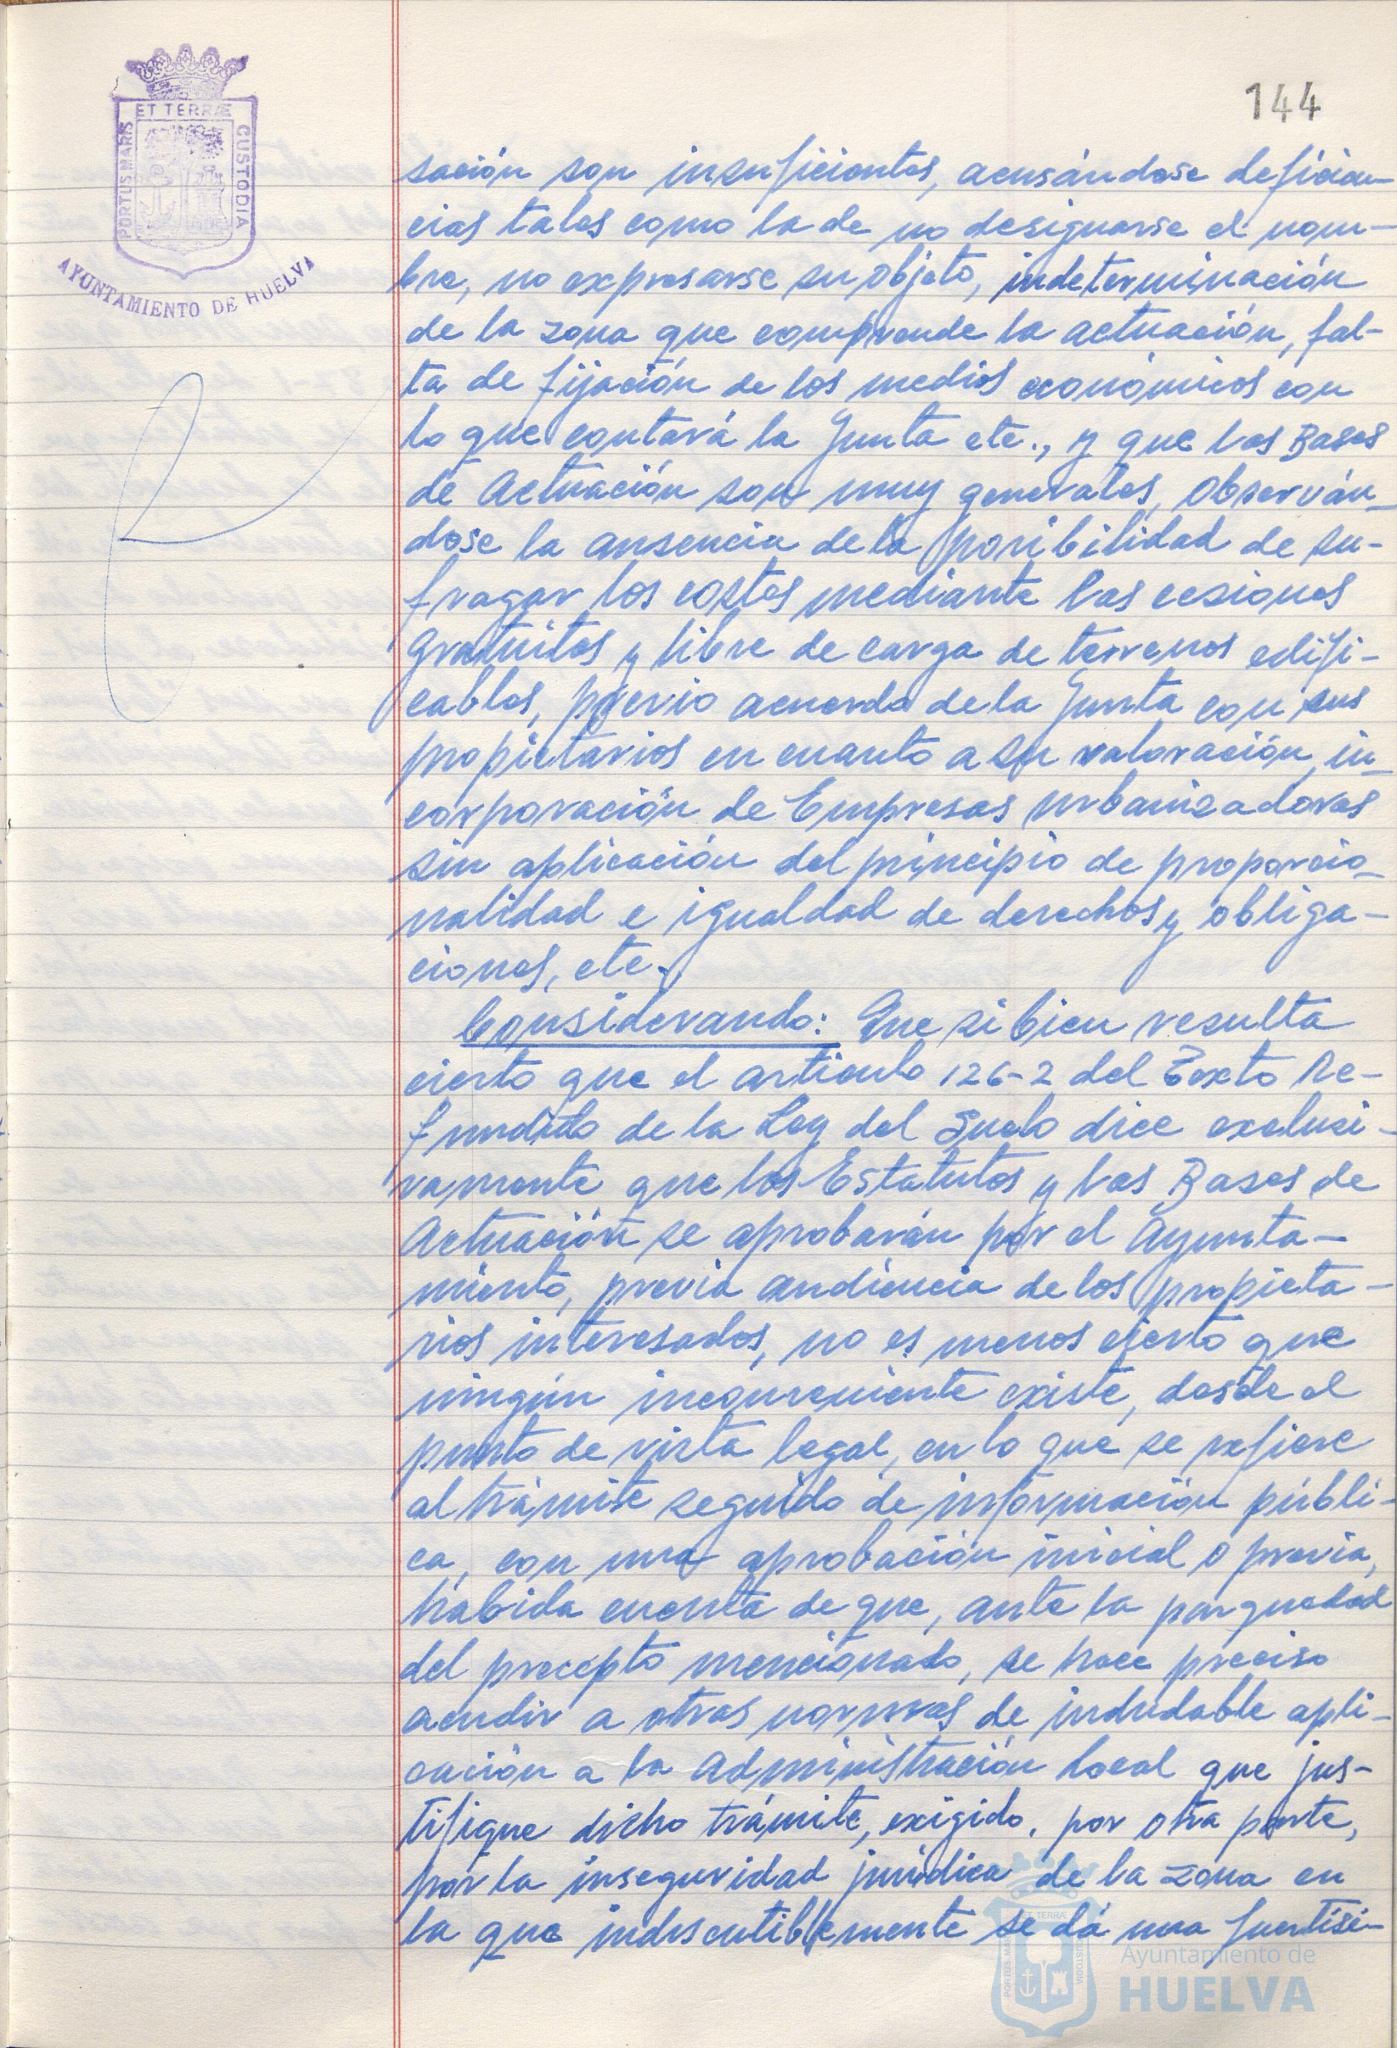 144
ET TERRÆ
PORTUS MARIS
CUSTODIA
AYUNTAMIENTO DE HUELVA
sación son insuficientes, acusándose deficien-
cias tales como la de no designarse el nom-
bre, no expresarse su objeto, indeterminación
de la zona que comprende la actuación, fal-
ta de fijación de los medios económicos con
lo que contará la Junta etc., y que las Bases
de Actuación son muy generales, observán-
dose la ausencia de la posibilidad de su-
fragar los costes mediante las cesiones
gratuitas y libre de carga de terrenos edifi-
cables, previo acuerdo de la Junta con sus
propietarios en cuanto a su valoración, in-
corporación de Empresas urbanizadoras
sin aplicación del principio de proporcio-
nalidad e igualdad de derechos y obliga-
ciones, etc.
Considerando: Que si bien resulta
cierto que el artículo 126-2 del Texto Re-
fundido de la Ley del Suelo dice exclusi-
vamente que los Estatutos y las Bases de
Actuación se aprobarán por el Ayunta-
miento, previa audiencia de los propieta-
rios interesados, no es menos cierto que
ningún inconveniente existe, desde el
punto de vista legal, en lo que se refiere
al trámite seguido de información públi-
ca, con una aprobación inicial o previa,
habida cuenta de que, ante la parquedad
del precepto mencionado, se hace preciso
acudir a otras normas de indudable apli-
cación a la Administración local que jus-
tifique dicho trámite, exigido, por otra parte,
por la inseguridad jurídica de la zona en
la que indiscutiblemente se dá una fuertísi-
Ayuntamiento de
HUELVA